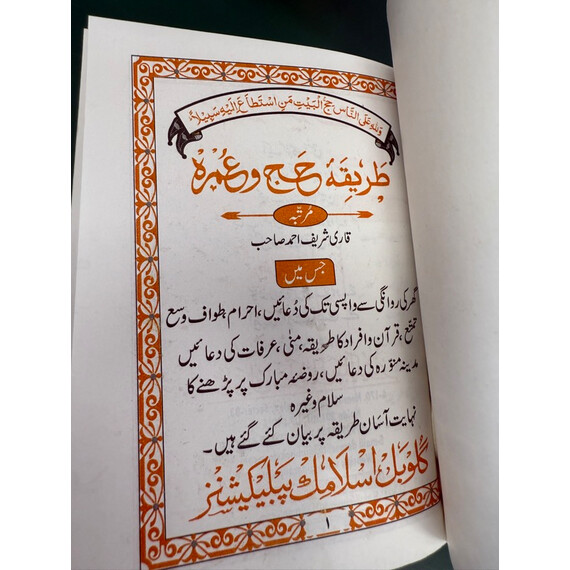 وَلِلّٰهِ عَلَى النَّاسِ حِجُّ الْبَيْتِ مَنِ اسْتَطَاعَ اِلَيْهِ سَبِيْلًا
طریقۂ حَج وعُمرہ
مرتبہ
قاری شریف احمد صاحب
جس میں
گھر کی روانگی سے واپسی تک کی دُعائیں، احرام طواف وسع
تمتع، قرآن و افراد کا طریقہ، منیٰ، عرفات کی دعائیں
مدینہ منوّرہ کی دعائیں، روضہ مبارک پر پڑھنے کا
سلام وغیرہ
نہایت آسان طریقہ پر بیان کئے گئے ہیں۔
گلوبل اسلامک پبلیکیشنز
۱